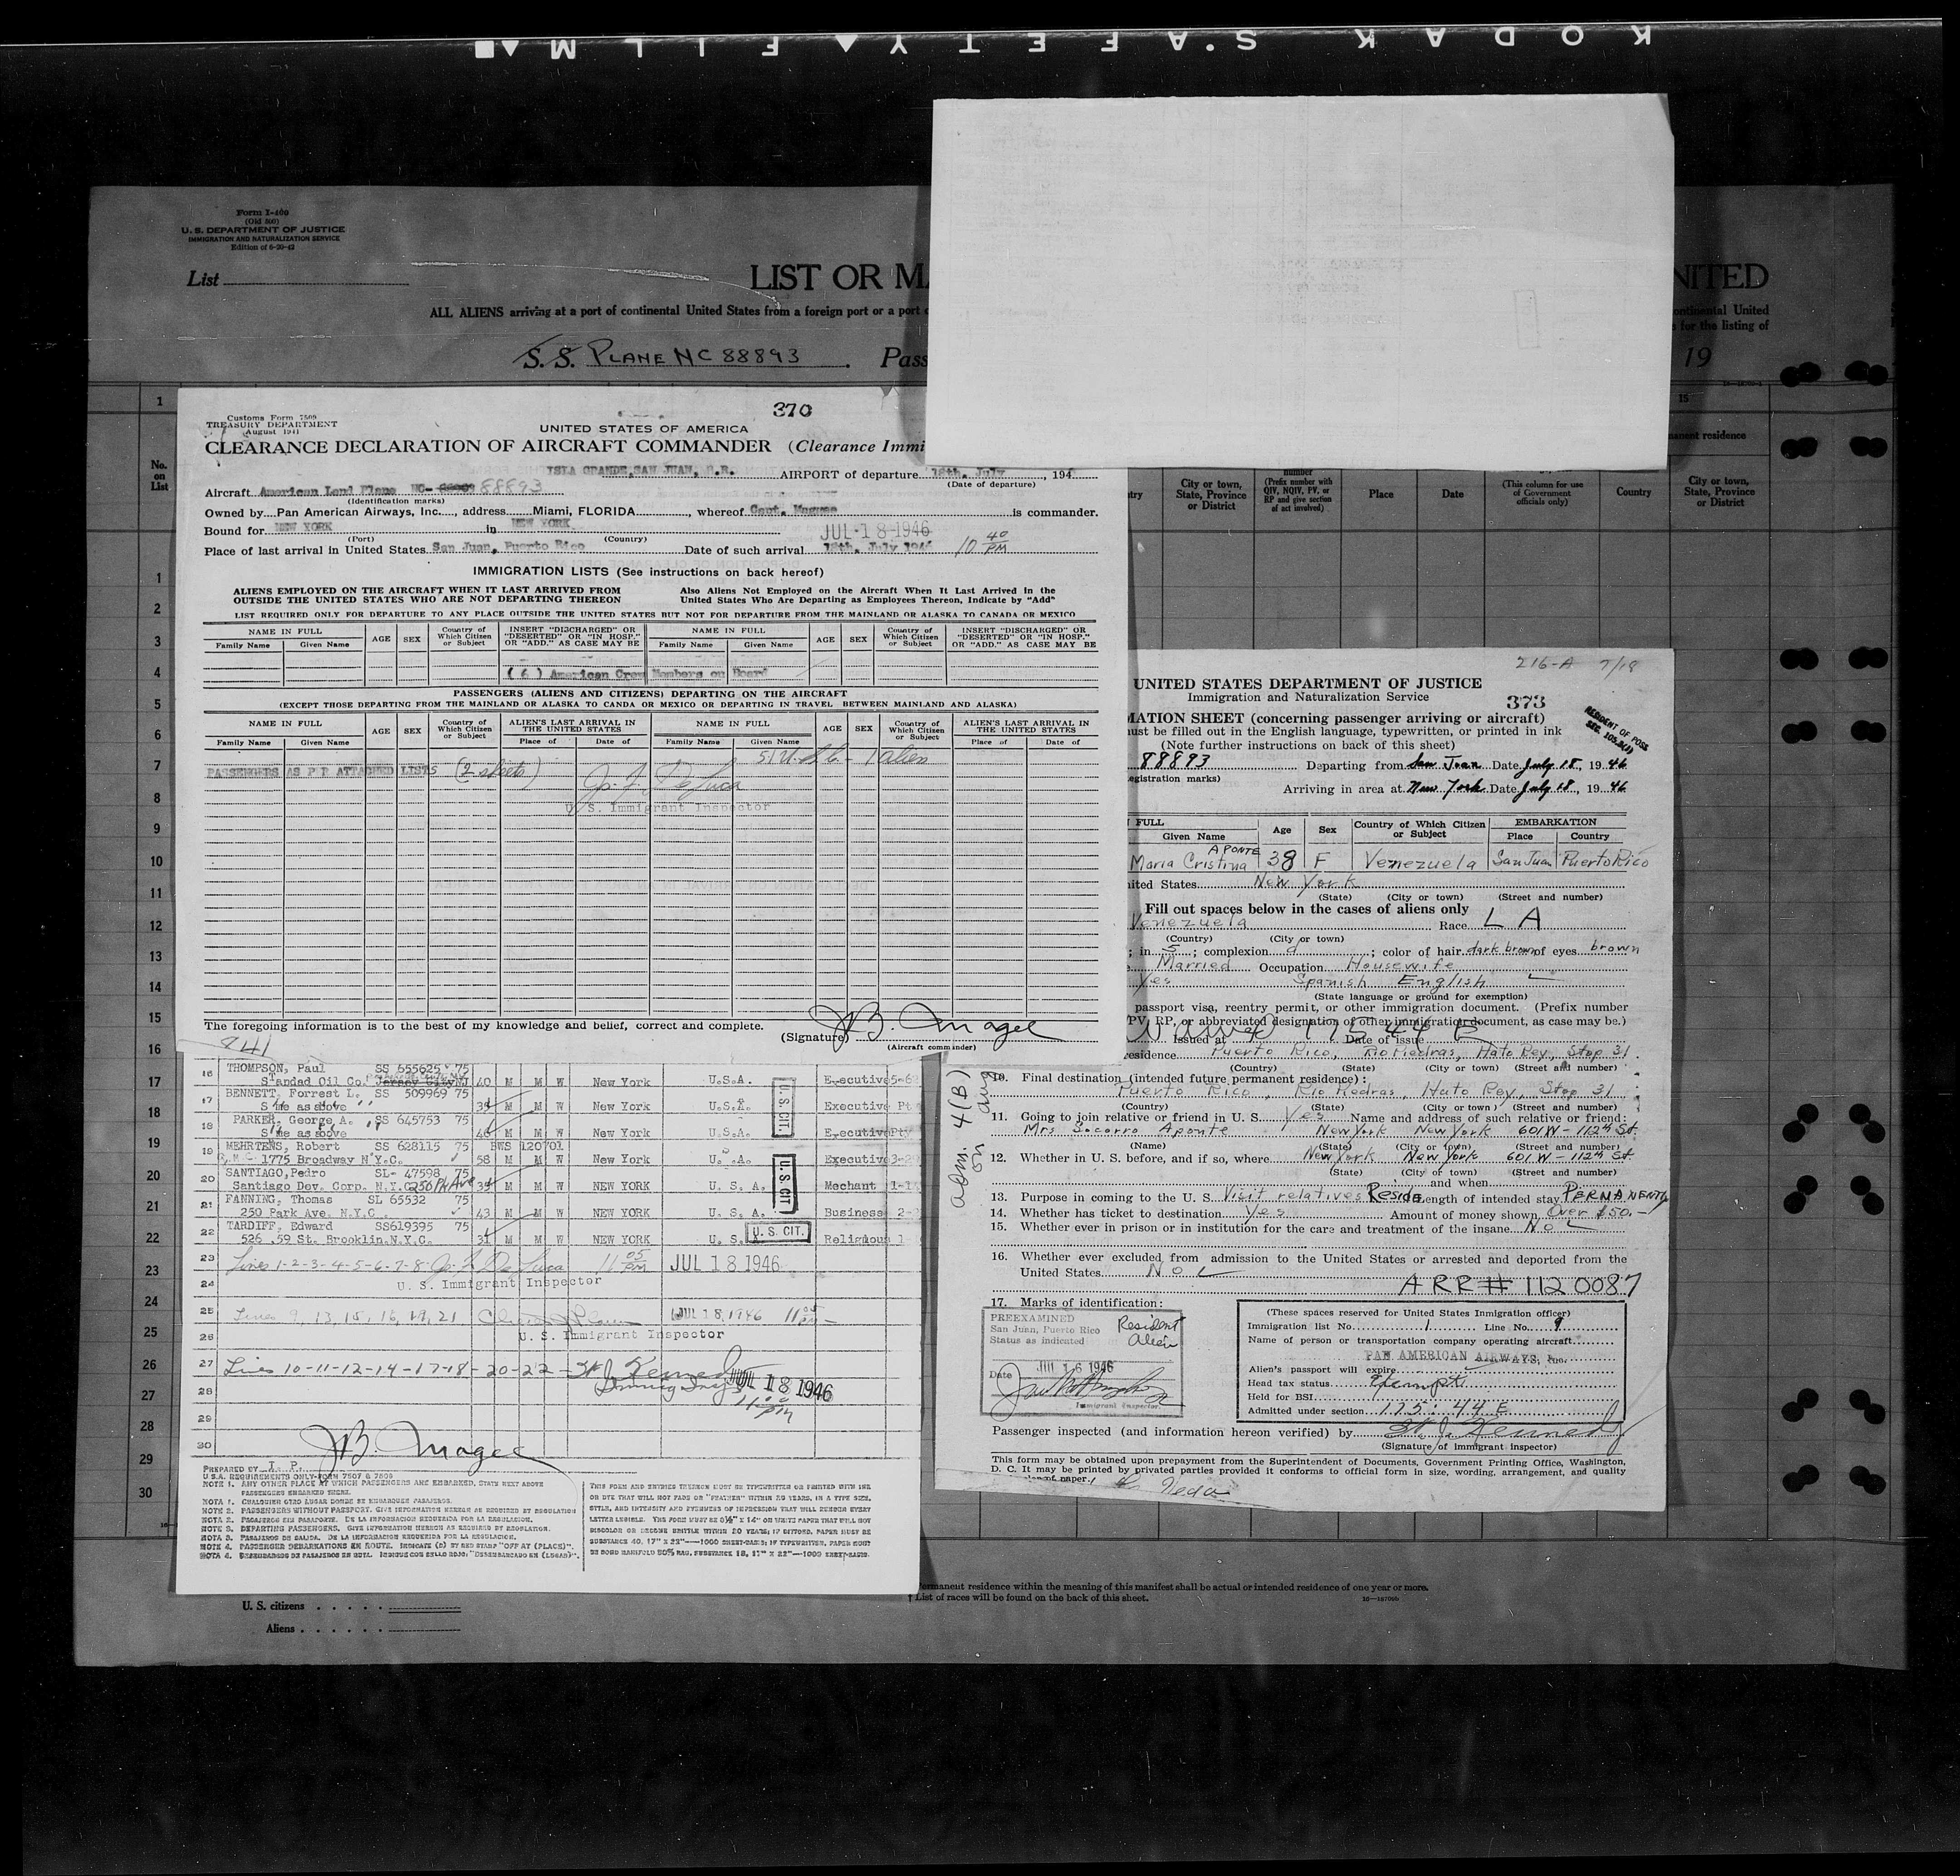 KODAK S.AFETY FILM
Form I-400
(Old 500)
U. S. DEPARTMENT OF JUSTICE
IMMIGRATION AND NATURALIZATION SERVICE
Edition of 6-20-42
List
LIST OR MA
NITED
ALL ALIENS arriving at a port of continental United States from a foreign port or a port
ontinental United
for the listing of
S. S. PLANE NC 88893. Pass
19
370
Customs Form 7509
TREASURY DEPARTMENT
August 1941
UNITED STATES OF AMERICA
CLEARANCE DECLARATION OF AIRCRAFT COMMANDER (Clearance Immi
ISLA GRANDE, SAN JUAN, P.R. AIRPORT of departure 18th. July, 194
(Date of departure)
Aircraft American Land Plane NC- 88893
(Identification marks)
Owned by Pan American Airways, Inc., address Miami, FLORIDA, whereof Capt. is commander.
Bound for NEW YORK in NEW YORK JUL 18 1946
(Port) (Country)
Place of last arrival in United States San Juan, Puerto Rico Date of such arrival 18th. July 1946 10 40 PM
IMMIGRATION LISTS (See instructions on back hereof)
ALIENS EMPLOYED ON THE AIRCRAFT WHEN IT LAST ARRIVED FROM Also Aliens Not Employed on the Aircraft When It Last Arrived in the
OUTSIDE THE UNITED STATES WHO ARE NOT DEPARTING THEREON United States Who Are Departing as Employees Thereon, Indicate by "Add"
LIST REQUIRED ONLY FOR DEPARTURE TO ANY PLACE OUTSIDE THE UNITED STATES BUT NOT FOR DEPARTURE FROM THE MAINLAND OR ALASKA TO CANADA OR MEXICO
NAME IN FULL AGE SEX Country of Which Citizen or Subject INSERT "DISCHARGED" OR "DESERTED" OR "IN HOSP." OR "ADD." AS CASE MAY BE NAME IN FULL AGE SEX Country of Which Citizen or Subject INSERT "DISCHARGED" OR "DESERTED" OR "IN HOSP." OR "ADD." AS CASE MAY BE
Family Name Given Name Family Name Given Name
(6) American Crew Members on Board
PASSENGERS (ALIENS AND CITIZENS) DEPARTING ON THE AIRCRAFT
(EXCEPT THOSE DEPARTING FROM THE MAINLAND OR ALASKA TO CANDA OR MEXICO OR DEPARTING IN TRAVEL BETWEEN MAINLAND AND ALASKA)
NAME IN FULL AGE SEX Country of Which Citizen or Subject ALIEN'S LAST ARRIVAL IN THE UNITED STATES NAME IN FULL AGE SEX Country of Which Citizen or Subject ALIEN'S LAST ARRIVAL IN THE UNITED STATES
Family Name Given Name Place of Date of Family Name Given Name Place of Date of
PASSENGERS AS PER ATTACHED LISTS (2 sheets)
U. S. Immigrant Inspector
The foregoing information is to the best of my knowledge and belief, correct and complete.
(Signature) JB. Magee
(Aircraft commander)
841
16 THOMPSON, Paul SS 655625 75
Standad Oil Co. Jersey City NJ 40 M M W New York U.S.A. Executive
17 BENNETT, Forrest L. SS 509969 75
Same as above M M W New York U.S.A. Executive
18 PARKER, George A. SS 645753 75
Same as above M M W New York U.S.A. Executive
19 MEHRTENS, Robert SS 628115 75 BWS 120701
1775 Broadway N.Y.C. 58 M M W New York U.S.A. Executive
20 SANTIAGO, Pedro SL- 47598 75
Santiago Dev. Corp. N.Y.C. 250 Pk Ave M M W NEW YORK U. S. A. Mechant
21 FANNING, Thomas SL 65532 75
250 Park Ave. N.Y.C. 43 M M W NEW YORK U. S. A. Business
22 TARDIFF, Edward SS619395 75
526 .59 St. Brooklin.N.Y.C. M M W NEW YORK U. S. Religious
U.S. CIT.
U.S. CIT
U.S. CIT.
23 Lines 1-2-3-4-5-6-7-8- 11 05 PM JUL 18 1946
24 U. S. Immigrant Inspector
25 Lines 9, 13, 15, 16, 19, 21 JUL 18, 1946 11 05 PM
26 U. S. Immigrant Inspector
27 Lines 10-11-12-14-17-18-20-22- Kennedy JUL 18 1946
28
29
30 JB. Magee
PREPARED BY I. P.
U.S.A. REQUIREMENTS ONLY-FORM 7507 & 7509
NOTE 1. ANY OTHER PLACE AT WHICH PASSENGERS ARE EMBARKED, STATE NEXT ABOVE
PASSENGERS EMBARKED THERE.
NOTA 1. CUALQUIER OTRO LUGAR DONDE SE EMBARQUEN PASAJEROS.
NOTE 2. PASSENGERS WITHOUT PASSPORT. GIVE INFORMATION HEREON AS REQUIRED BY REGULATION
NOTA 2. PASAJEROS SIN PASAPORTE. DE LA INFORMACION REQUERIDA POR LA REGULACION.
NOTE 3. DEPARTING PASSENGERS. GIVE INFORMATION HEREON AS REQUIRED BY REGULATION.
NOTA 3. PASAJEROS DE SALIDA. DE LA INFORMACION REQUERIDA POR LA REGULACION.
NOTE 4. PASSENGER DEBARKATIONS EN ROUTE. INDICATE (D) BY RED STAMP "OFF AT (PLACE)".
THIS FORM AND ENTRIES THEREON MUST BE TYPEWRITTEN OR PRINTED WITH INK
OR DYE THAT WILL NOT FADE OR "FEATHER" WITHIN 20 YEARS, IN A TYPE SIZE,
U. S. citizens
Aliens
216-A 7/18
UNITED STATES DEPARTMENT OF JUSTICE
Immigration and Naturalization Service
373
MATION SHEET (concerning passenger arriving or aircraft)
RESIDENT OF POSS
ust be filled out in the English language, typewritten, or printed in ink
(Note further instructions on back of this sheet)
88893 Departing from San Juan Date July 18, 1946
egistration marks)
Arriving in area at New York Date July 18, 1946
FULL Age Sex Country of Which Citizen or Subject EMBARKATION
Given Name Place Country
Maria Cristina APONTE 38 F Venezuela San Juan Puerto Rico
ited States New York
(State) (City or town) (Street and number)
Fill out spaces below in the cases of aliens only
Venezuela Race L A
(Country) (City or town)
; in 5; complexion d; color of hair dark brown of eyes brown
Married Occupation Housewife
Yes Spanish English
(State language or ground for exemption)
passport visa, reentry permit, or other immigration document. (Prefix number
PV, RP, or abbreviated designation of other immigration document, as case may be.)
Issued at Date of issue
esidence Puerto Rico, Rio Piedras, Hato Rey, Stop 31
(Country) (State) (City or town) (Street and number)
10. Final destination (intended future permanent residence):
Puerto Rico, Rio Piedras, Hato Rey, Stop 31
(Country) (State) (City or town) (Street and number)
11. Going to join relative or friend in U. S. Yes Name and address of such relative or friend:
Mrs Socorro Aponte New York New York 601 W-112th St.
(Name) (State) (City or town) (Street and number)
12. Whether in U. S. before, and if so, where New York New York 601 W-112th St
(State) (City or town) (Street and number)
and when
13. Purpose in coming to the U. S. Visit relatives Reside Length of intended stay PERMANENTly
14. Whether has ticket to destination Yes Amount of money shown Over $50.-
15. Whether ever in prison or in institution for the care and treatment of the insane No
16. Whether ever excluded from admission to the United States or arrested and deported from the
United States No
ARR# 1120087
17. Marks of identification:
PREEXAMINED
San Juan, Puerto Rico
Status as indicated
Resident Alien
Date JUL 16 1946
Immigrant Inspector
(These spaces reserved for United States Inmigration officer)
Immigration list No. 1 Line No. 9
Name of person or transportation company operating aircraft
PAN AMERICAN AIRWAYS, Inc.
Alien's passport will expire
Head tax status Exempt
Held for BSI
Admitted under section 175.44 E
Passenger inspected (and information hereon verified) by
(Signature of Immigrant Inspector)
This form may be obtained upon prepayment from the Superintendent of Documents, Government Printing Office, Washington,
D. C. It may be printed by private parties provided it conforms to official form in size, wording, arrangement, and quality
of paper.
Adm. 4(B)
ermanent residence within the meaning of this manifest shall be actual or intended residence of one year or more.
† List of races will be found on the back of this sheet.